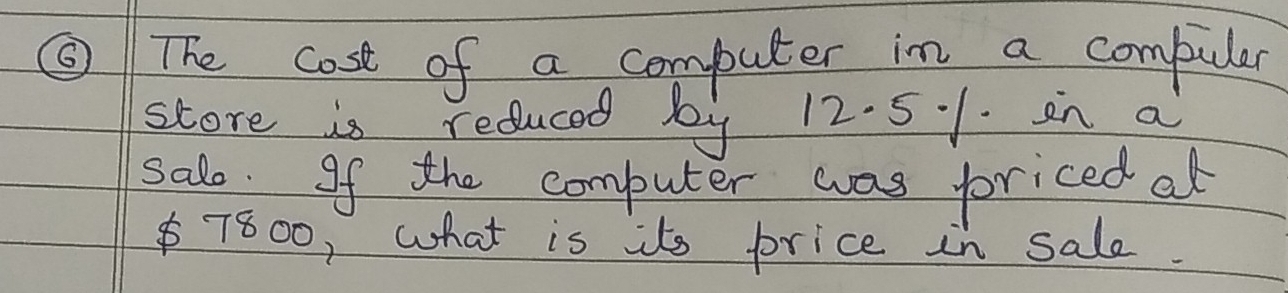 6 The cost of a computer in a computer
store is reduced by 12.5 % in a
sale. If the computer was priced at
$ 7800, what is its price in sale.